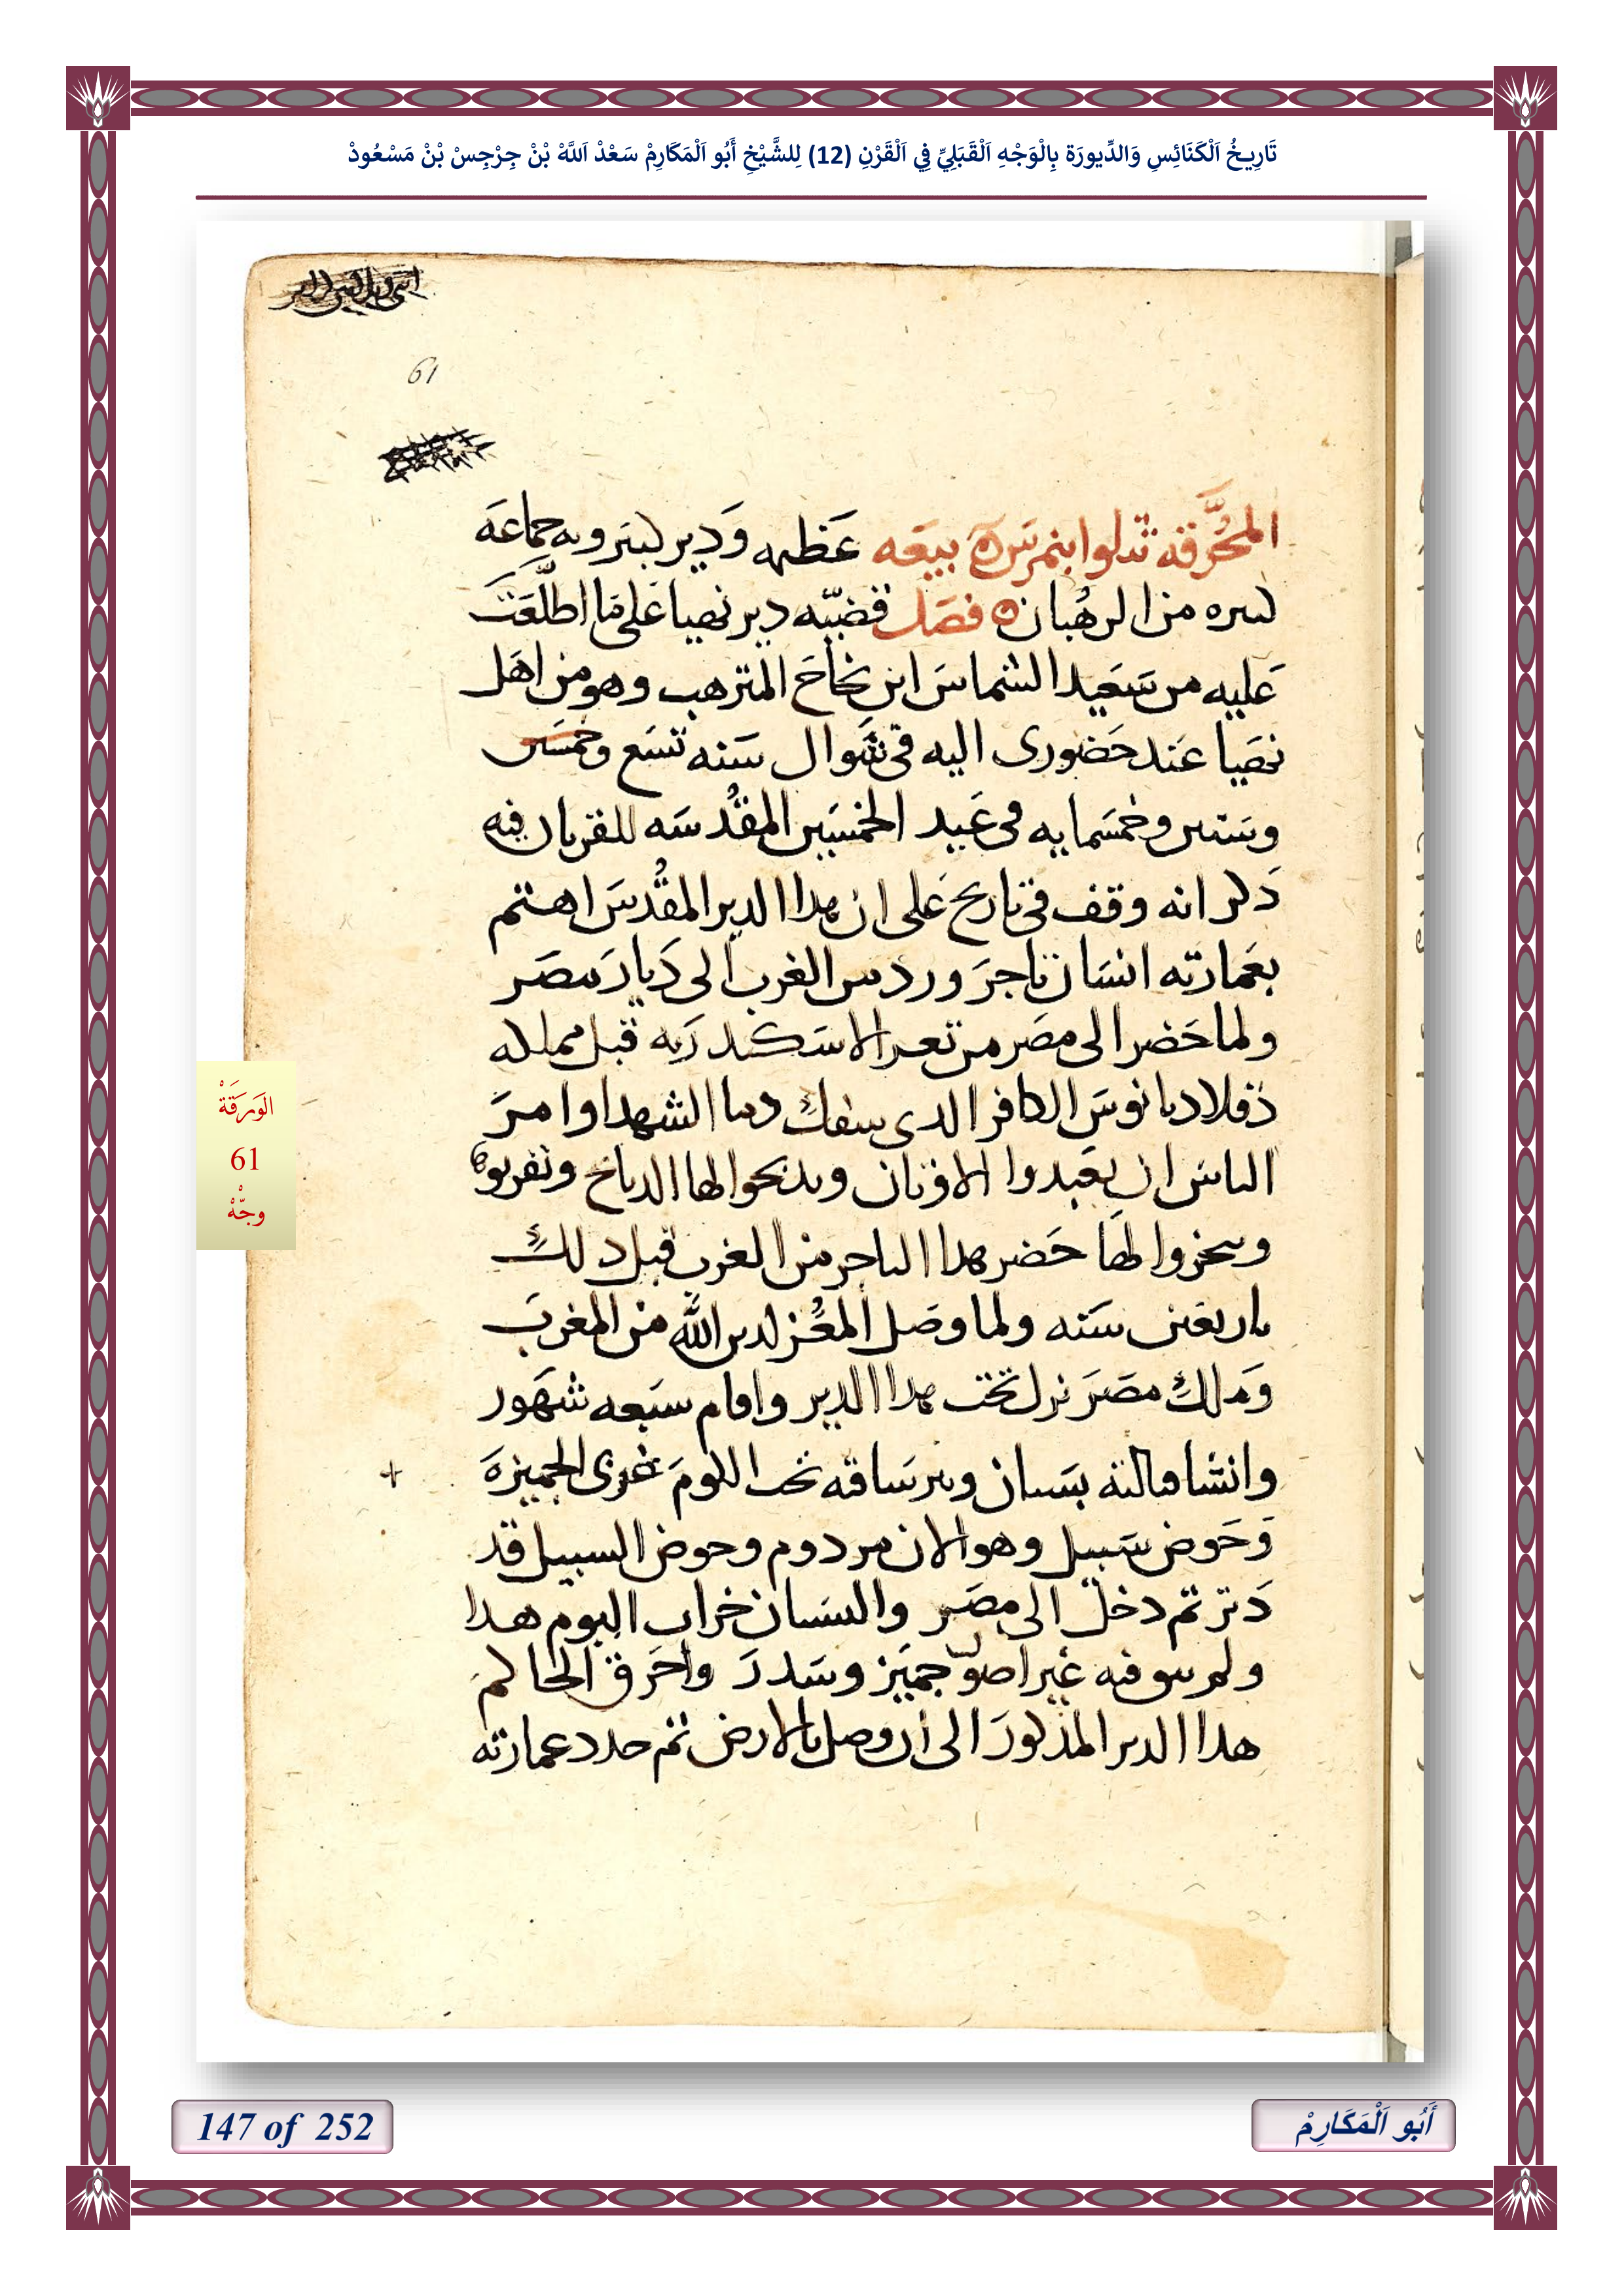 تَارِيخُ اَلْكَنَائِسِ وَالدِّيورَة بِالْوَجْهِ اَلْقَبَلِيِّ فِي اَلْقَرْنِ (12) لِلشَّيْخِ أَبُو اَلْمَكَارِمْ سَعْدْ اَللَّهْ بْنْ جِرْجِسْ بْنْ مَسْعُودْ
61
المحُرَّقه تتلوا بنمرسَ ه بيعَه عَظيمه وَدير كبير وبه جماعَه
كبيره من الرهُبان ه فصَل قضيّه دير نهيا عَلي مَا اطلَّعَتَ
عَليه من سَعَيد الشماسَ ابن نجاحَ المترهب وهو من اهَل
نهَيا عَند حَضوري اليه في شوال سَنه تسَع وخمسَين
وسَتين وخمسَمايه في عَيد الخمسَين المقُدسَه للقربان فيه
ذكر انه وقف في تاريخ عَلي ان هدا الدير المقُدسَ اهتم
بعَمارته انسَان تاجرَ ورد من الغرب الي دَيارَ مصَر
ولما حَضر الي مصَر من تعر الاسَكندَريه قبل مملكه
دقلاديانوسَ الكافر الدي سفك دما الشهدا وامرَ
الناسَ ان يعَبدوا الاوتان ويدبحوا لها الدبايح ويقربوا
وسَخروا لهَا حَضر هدا التاجر من الغرب قبل دلك
باربعَين سَنه ولما وصَل المعُز لدين الله من المغربَ
وَملك مصَرَ نزل تحَت هدا الدير واقام سبَعه شهَور
وانشا قبالته بسَتان وبير سَاقه تحت الكومَ غربي الجميزهَ
وَحَوض سَبيل وهو الان مردوم وحوض السبيل قد
دَتر تم دخل الي مصَر والبستان خراب اليوم هدا
ولم يبق فيه غير اصول جميَز وسَدرَ واحَرق الحاكم
هدا الدير المذكورَ الي ان وصل بالارض تم جدد عمارته
الوَرَقَةْ
61
وجّهْ
147 of 252
أَبُو اَلْمَكَارِمْ